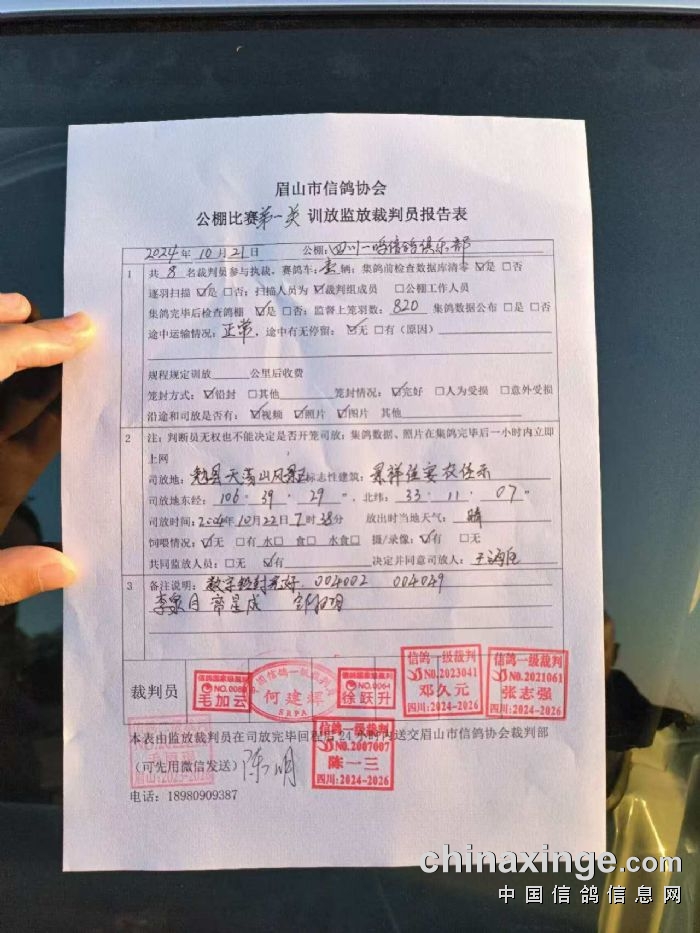 眉山市信鸽协会
公棚比赛第一关 训放监放裁判员报告表
2024年10月21日 公棚:四川一鸣信鸽俱乐部
1 共 8 名裁判员参与执裁,赛鸽车:壹 辆;集鸽前检查数据库清零 ☑是 □否
逐羽扫描 ☑是 □否;扫描人员为 ☑裁判组成员 □公棚工作人员
集鸽完毕后检查鸽棚 ☑是 □否;监督上笼羽数:820 集鸽数据公布 □是 □否
途中运输情况:正常,途中有无停留:☑无 □有(原因)
规程规定训放 公里后收费
笼封方式:☑铅封 □其他 笼封情况:☑完好 □人为受损 □意外受损
沿途和司放是否有:☑视频 ☑照片 ☑图片 其他
2 注:判断员无权也不能决定是否开笼司放;集鸽数据、照片在集鸽完毕后一小时内立即
上网
司放地:勉县天荡山风景区 标志性建筑:景祥佳宴农家乐
司放地东经:106°39′29″,北纬:33°11′07″
司放时间:2024年10月22日7时38分 放出时当地天气:晴
饲喂情况:☑无 □有 水□ 食□ 水食□ 摄/录像:☑有 □无
共同监放人员:□无 ☑有 决定并同意司放人:
3 备注说明:数字铅封完好.004002 004049
裁判员
信鸽国家级裁判
毛加云
中国信鸽一级裁判员
何建辉
SRPA
信鸽国家级裁判
徐跃升
信鸽一级裁判
NO.2023041
邓久元
四川:2024-2026
信鸽一级裁判
NO.2021061
张志强
四川:2024-2026
本表由监放裁判员在司放完毕回程后24小时内送交眉山市信鸽协会裁判部
(可先用微信发送)陈明
信鸽一级裁判
NO.2007007
陈一三
四川:2024-2026
电话:18980909387
chinaxinge.com
中国信鸽信息网